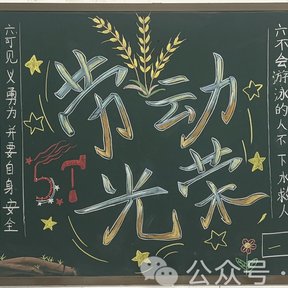 劳动
光荣
51
六不会游泳的人不下水救人
六可见义勇力并要自身安全
一
公众号·